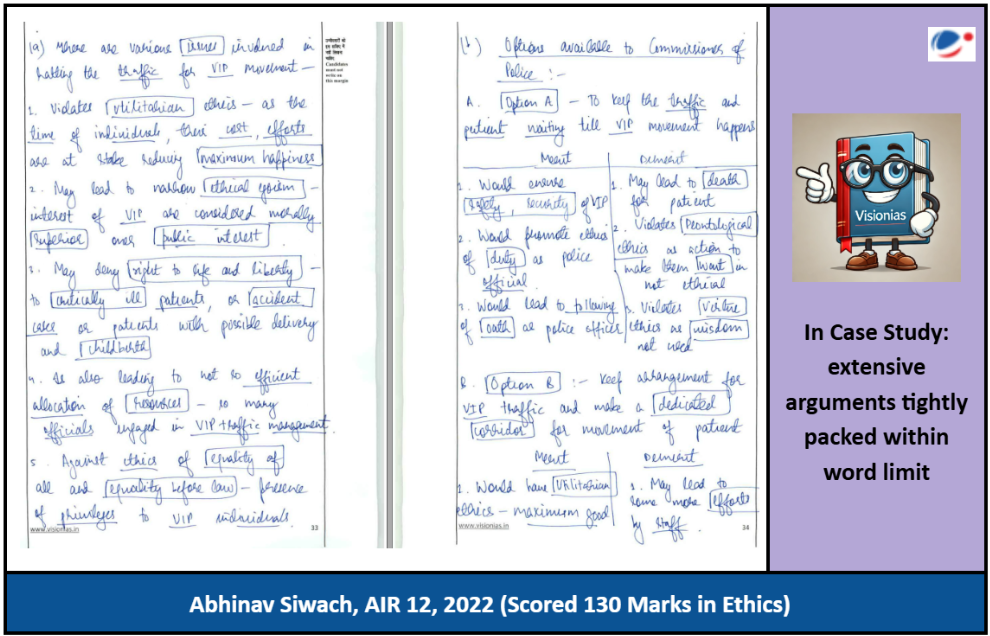 (a) There are various issues involved in
halting the traffic for VIP movement –
1. Violates utilitarian ethics – as the
time of individuals, their cost, efforts
are at stake reducing maximum happiness
2. May lead to narrow ethical egoism –
interest of VIP are considered morally
superior over public interest.
3. May deny right to life and liberty –
to critically ill patients, or accident
cases or patients with possible delivery
and childbirth
4. Is also leading to not so efficient
allocation of resources – so many
officials engaged in VIP traffic management.
5. Against ethics of equality of
all and equality before law – presence
of privileges to VIP individuals.
www.visionias.in
33
उम्मीदवारों को
इस हाशिए में
नहीं लिखना
चाहिए
Candidates
must not
write on
this margin
(b) Options available to Commissioner of
Police :-
A. Option A – To keep the traffic and
patient waiting till VIP movement happens
Merit
1. Would ensure
safety, security of VIP
2. Would promote ethics
of duty as police
official.
3. Would lead to following
of oath as police officer
Demerit
1. May lead to death
for patient
2. Violates Deontological
ethics as action to
make them wait is
not ethical
3. Violates Virtue
ethics as wisdom
not used
B. Option B :- keep arrangement for
VIP traffic and make a dedicated
corridor for movement of patient
Merit
1. Would have Utilitarian
ethics – maximum good
Demerit
1. May lead to
some more efforts
by staff.
www.visionias.in
34
Visionias
In Case Study:
extensive
arguments tightly
packed within
word limit
Abhinav Siwach, AIR 12, 2022 (Scored 130 Marks in Ethics)